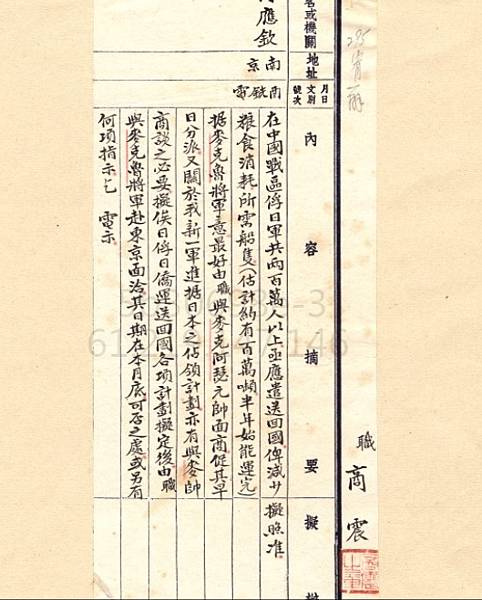 職 商震
名或機關
地址
月日
文別
號次
內容摘要
擬
應欽
南京
電
在中國戰區俘日軍共兩百萬人以上亟應遣送回國俾減少
糧食消耗所需船隻(估計約有百萬噸半年始能運完)
据麥克魯將軍意最好由職與麥克阿瑟元帥面商促其早
日分派又關於我新一軍進据日本之佔領計劃亦有與麥帥
商談之必要擬俟日俘日僑運送回國各項計劃擬定後由職
與麥克魯將軍赴東京面洽其日期在本月底可否之處或另有
何項指示乞 電示
擬照准